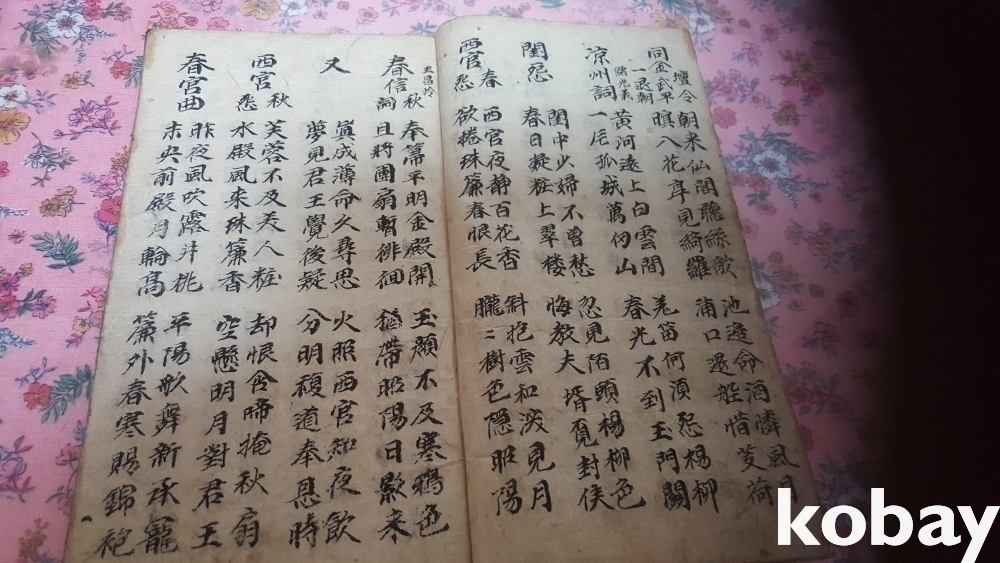 壇令
同金武平
一退朝
儲光羲
朝来仙閣聽絲歌 池邊命酒憐風月
暝入花亭見綺羅 浦口還船惜芰荷
涼州詞
黃河遠上白雲間 羌笛何湏怨楊柳
一片孤城萬仞山 春光不到玉門關
閨怨
閨中少婦不曾愁 忽見陌頭楊柳色
春日凝粧上翠楼 悔教夫壻覓封侯
西宮春怨
西宮夜静百花香 斜抱雲和深見月
欲捲珠簾春恨長 朧二樹色隱昭陽
王昌岭
春信秋詞
奉箒平明金殿開 玉顔不及寒鴉色
且將團扇暫徘徊 猶帶昭陽日影来
又
眞成薄命久尋思 火照西宮知夜飲
夢見君王覺後疑 分明複道奉恩時
西宮秋怨
芙蓉不及美人粧 却恨含啼掩秋扇
水殿風来珠簾香 空懸明月對君王
春宮曲
昨夜風吹露井桃 平陽歌舞新承寵
未央前殿月輪高 簾外春寒賜錦袍
kobay